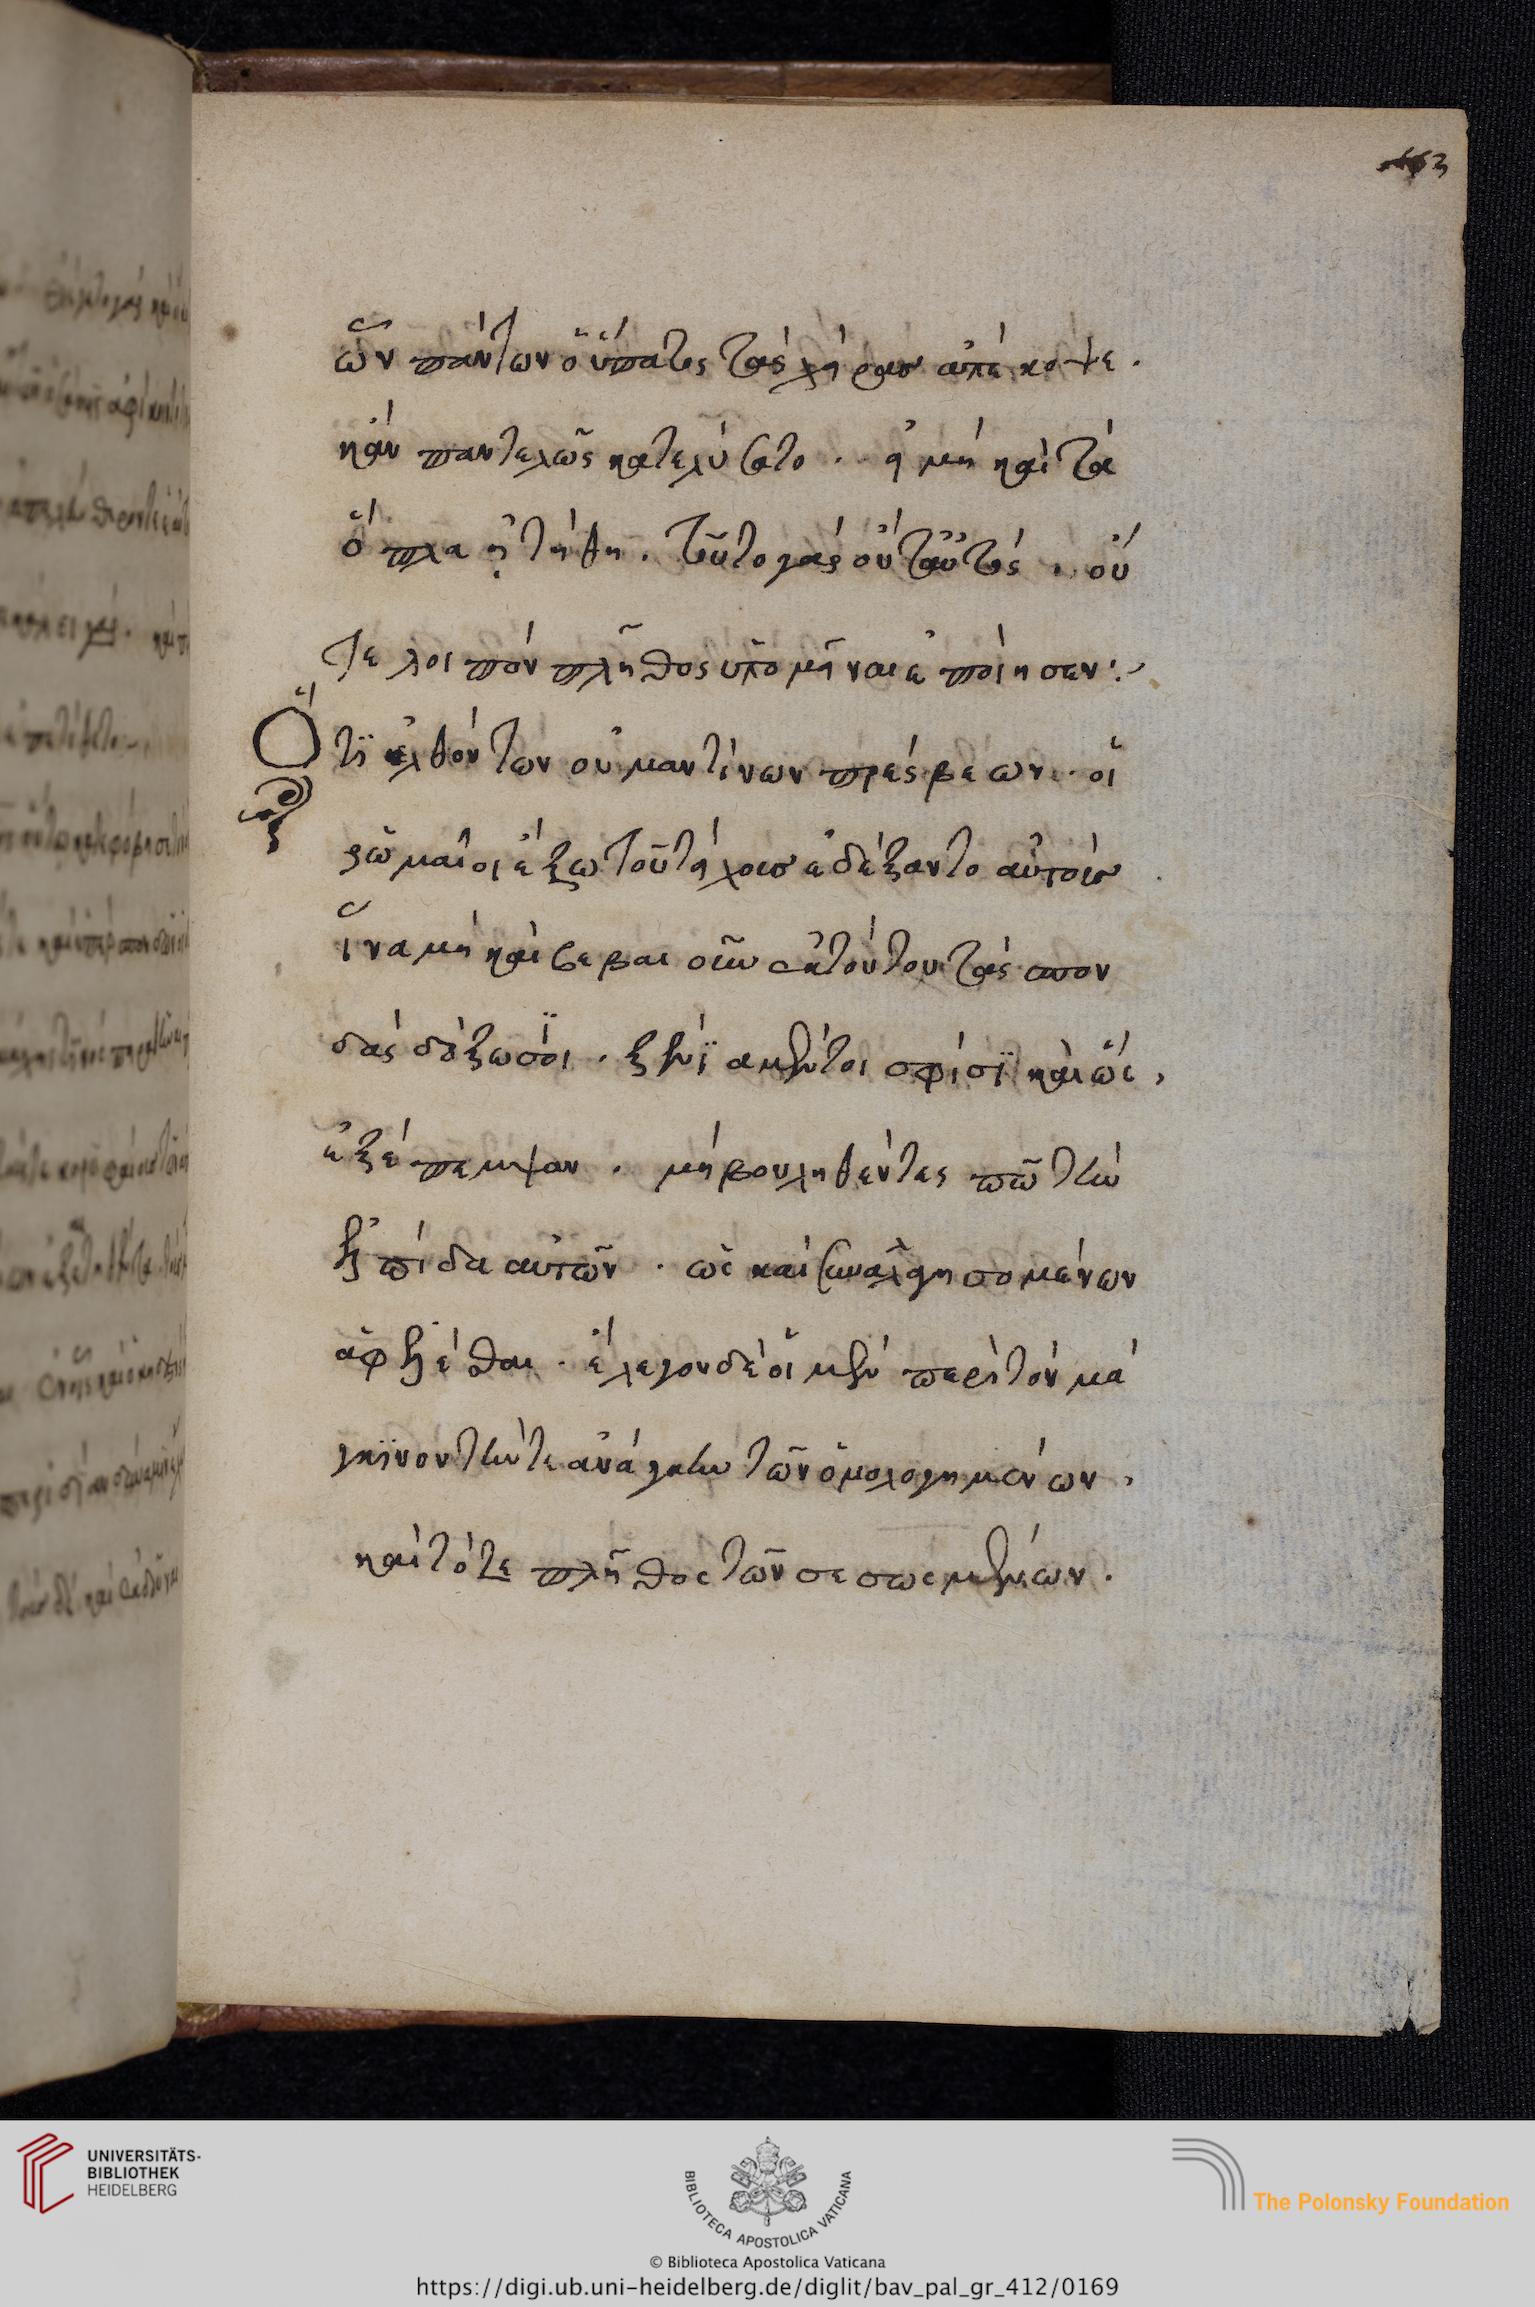 163
ὧν πάντων ὁ ὕπατος τὰς χήρας ἀπέκοψε.
κἂν παντελῶς κατελύσατο. εἰ μὴ καὶ τὰ
ὅπλα ᾐτήθη. τοῦτο γὰρ οὐ τούτους. οὐ
τε λοιπὸν πλῆθος ὑπομεῖναι ἐποίησεν:
Ὅτι ἐλθόντων οὐμαντίνων πρέσβεων. οἱ
ῥωμαῖοι ἔξω τοῦ τείχους ἐδέξαντο αὐτοὺς
ἵνα μὴ καὶ βεβαιοῦν ἐκ τούτου τὰς σπον
δὰς δόξωσϊ. ξένϊα μέντοι σφίσϊ καὶ ὣς,
ἐξέπεμψαν. μὴ βουληθέντες πω τὴν
ἐλπίδα αὐτῶν. ὡς καὶ συναλλαγησομένων
ἀφελέσθαι. ἔλεγον δὲ οἱ μὲν περὶ τὸν μά
γκϊνον τήν τε ἀνάγκην τῶν ὁμολογημένων,
καὶ τότε πλῆθος τῶν σεσωσμένων.
UNIVERSITÄTS-
BIBLIOTHEK
HEIDELBERG
BIBLIOTECA APOSTOLICA VATICANA
The Polonsky Foundation
© Biblioteca Apostolica Vaticana
https://digi.ub.uni-heidelberg.de/diglit/bav_pal_gr_412/0169